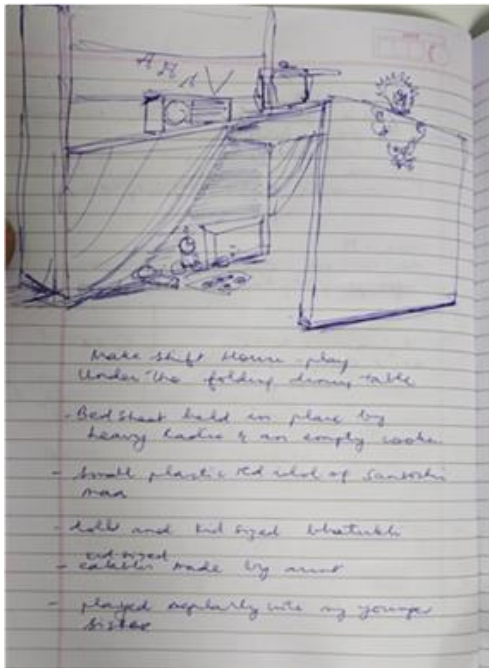 Make Shift House-play
Under the folding dining table
- Bedsheet held in place by
heavy radio & an empty cooker
- small plastic red idol of Santoshi
maa
- dolls and kid sized bhatukli
kid-sized
- eatables made by aunt
- played regularly with my younger
sister